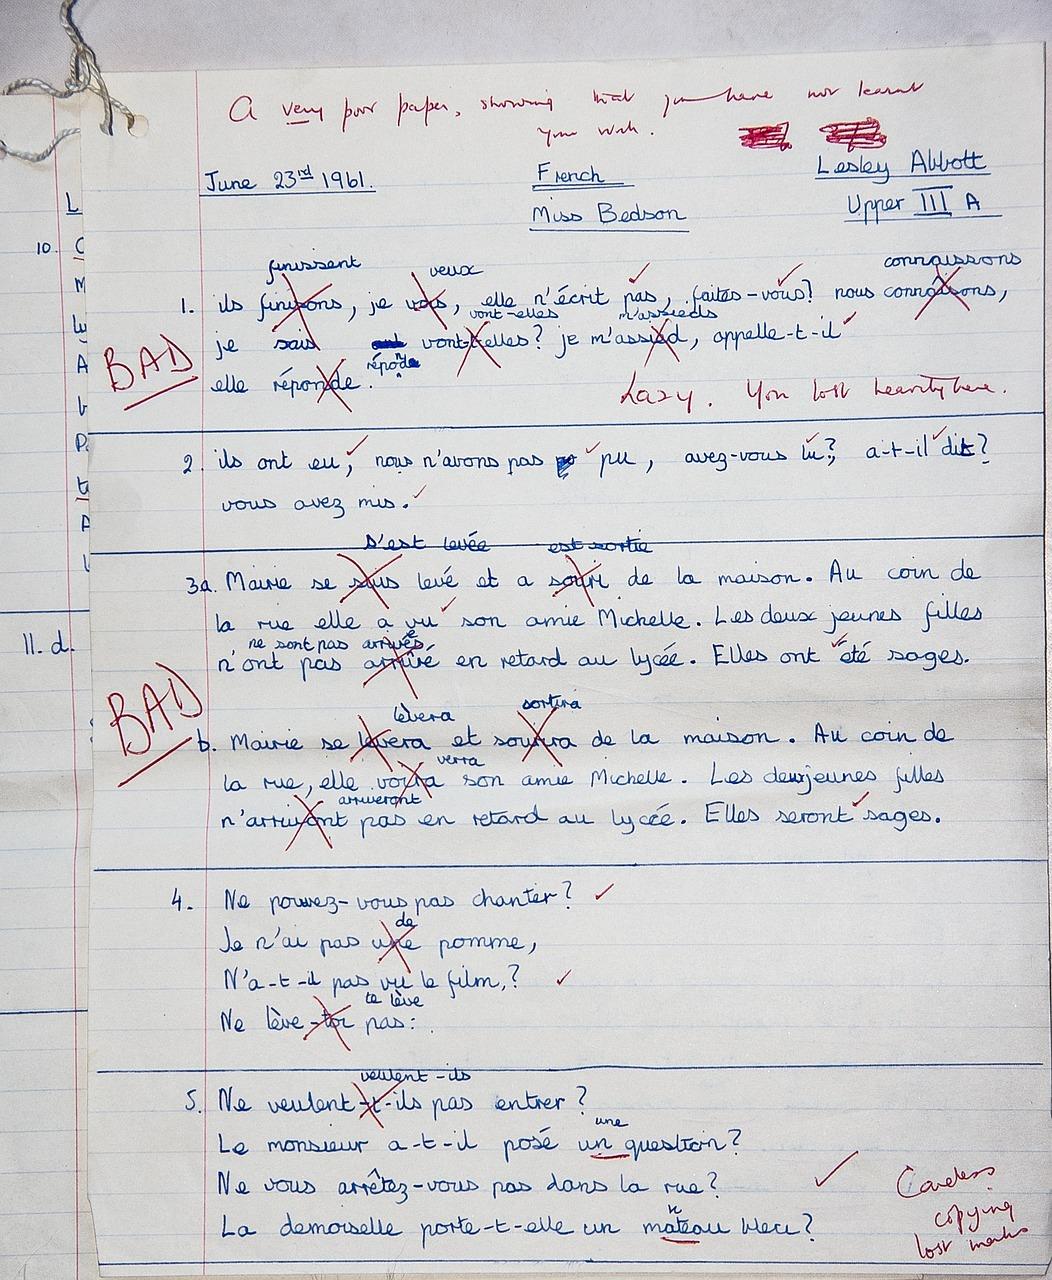 A very poor paper, showing that you have not learnt
your work.
June 23rd 1961.
French
Lesley Abbott
Miss Bedson
Upper III A
finissent veux connaissons
1. ils finisons, je vois, elle n'écrit pas, faites-vous? nous connaisons,
vont-elles m'assieds
je sais vont-elles? je m'assied, appelle-t-il
réponde
BAD
elle réponde.
Lazy. You lost heavily here.
2. ils ont eu, nous n'avons pas pu, avez-vous lu?, a-t-il dit?
vous avez mis.
s'est levée est sortie
3a. Mairie se suis levé et a souri de la maison. Au coin de
la rue elle a vu son amie Michelle. Les deux jeunes filles
ne sont pas arrivées
n'ont pas arrivé en retard au lycée. Elles ont été sages.
BAD
lèvera sortira
b. Mairie se levera et sourira de la maison. Au coin de
verra
la rue, elle voira son amie Michelle. Les deux jeunes filles
arriveront
n'arrivont pas en retard au lycée. Elles seront sages.
4. Ne pouvez-vous pas chanter?
de
Je n'ai pas une pomme,
N'a-t-il pas vu le film,?
te lève
Ne lève-toi pas:.
veulent-ils
5. Ne veulent-t-ils pas entrer?
une
Le monsieur a-t-il posé un question?
Ne vous arrêtez-vous pas dans la rue?
n
La demoiselle porte-t-elle un mateau bleu?
Careless
copying
lost marks
10.
11. d.